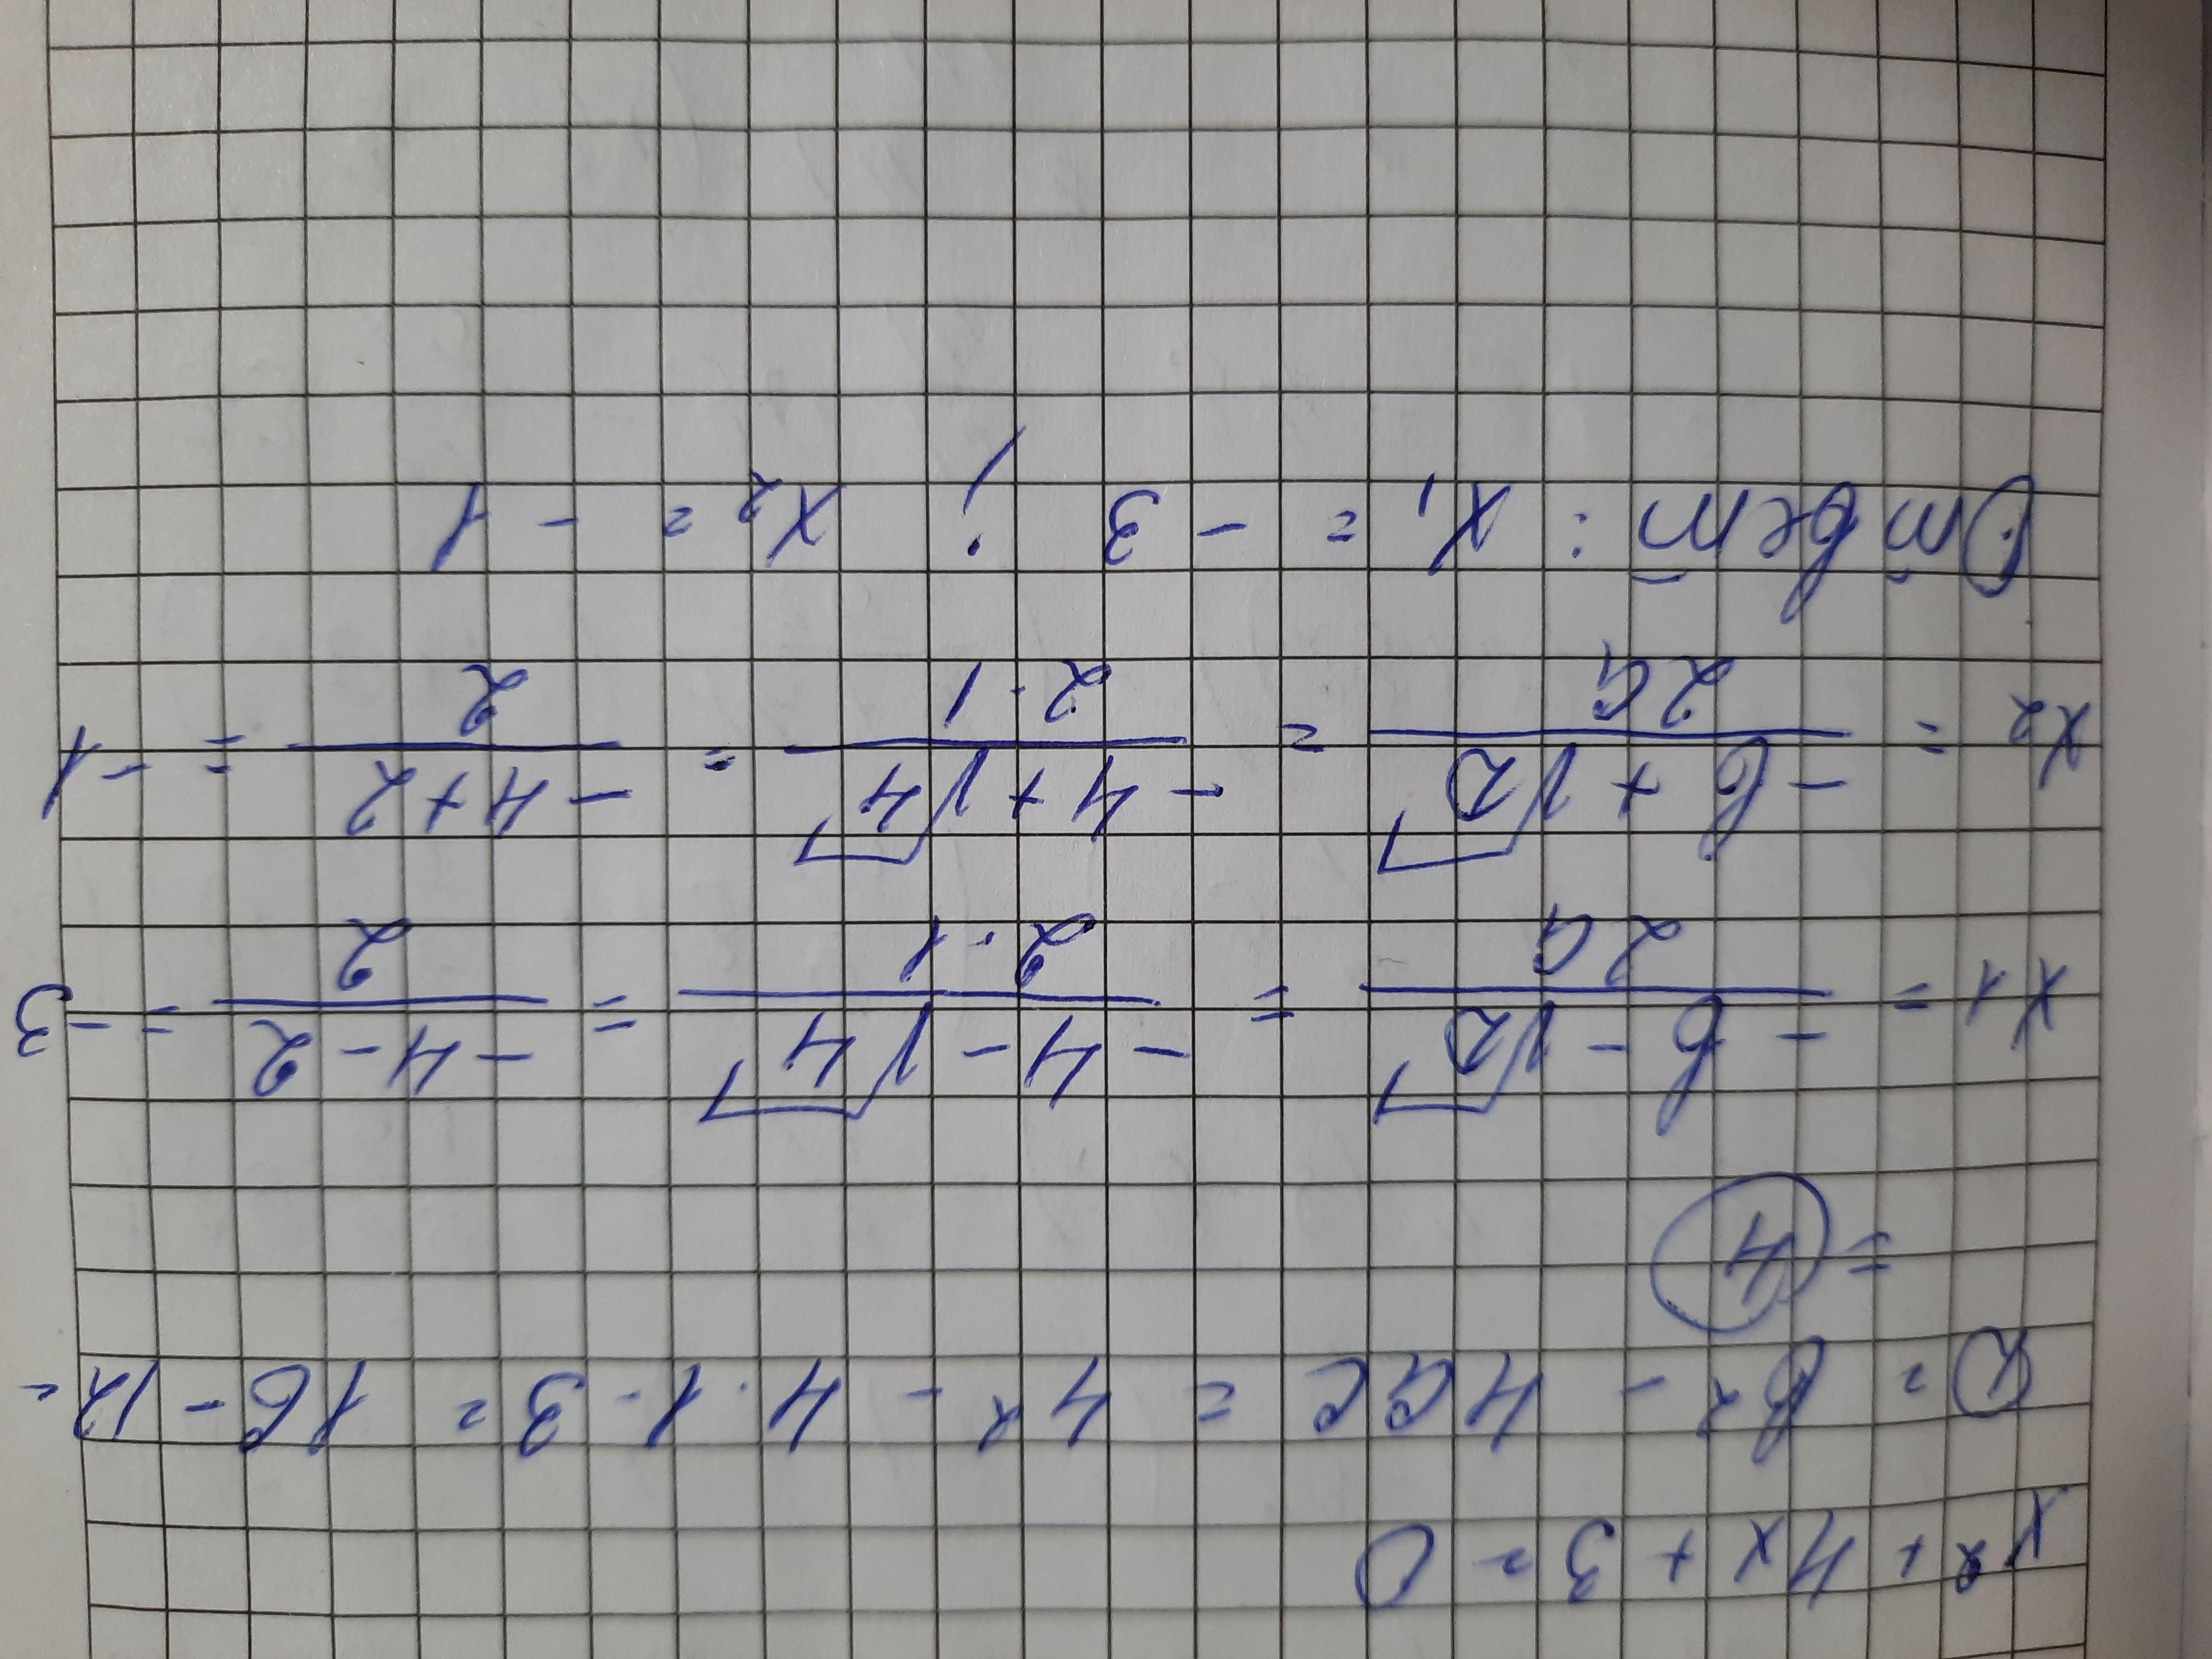 x2 + 4x + 3 = 0
D = b2 - 4ac = 42 - 4·1·3 = 16 - 12 =
= 4
x1 = (-b - √D) / 2a = (-4 - √4) / 2·1 = (-4 - 2) / 2 = -3
x2 = (-b + √D) / 2a = (-4 + √4) / 2·1 = (-4 + 2) / 2 = -1
Ответ: x1 = -3 ; x2 = -1